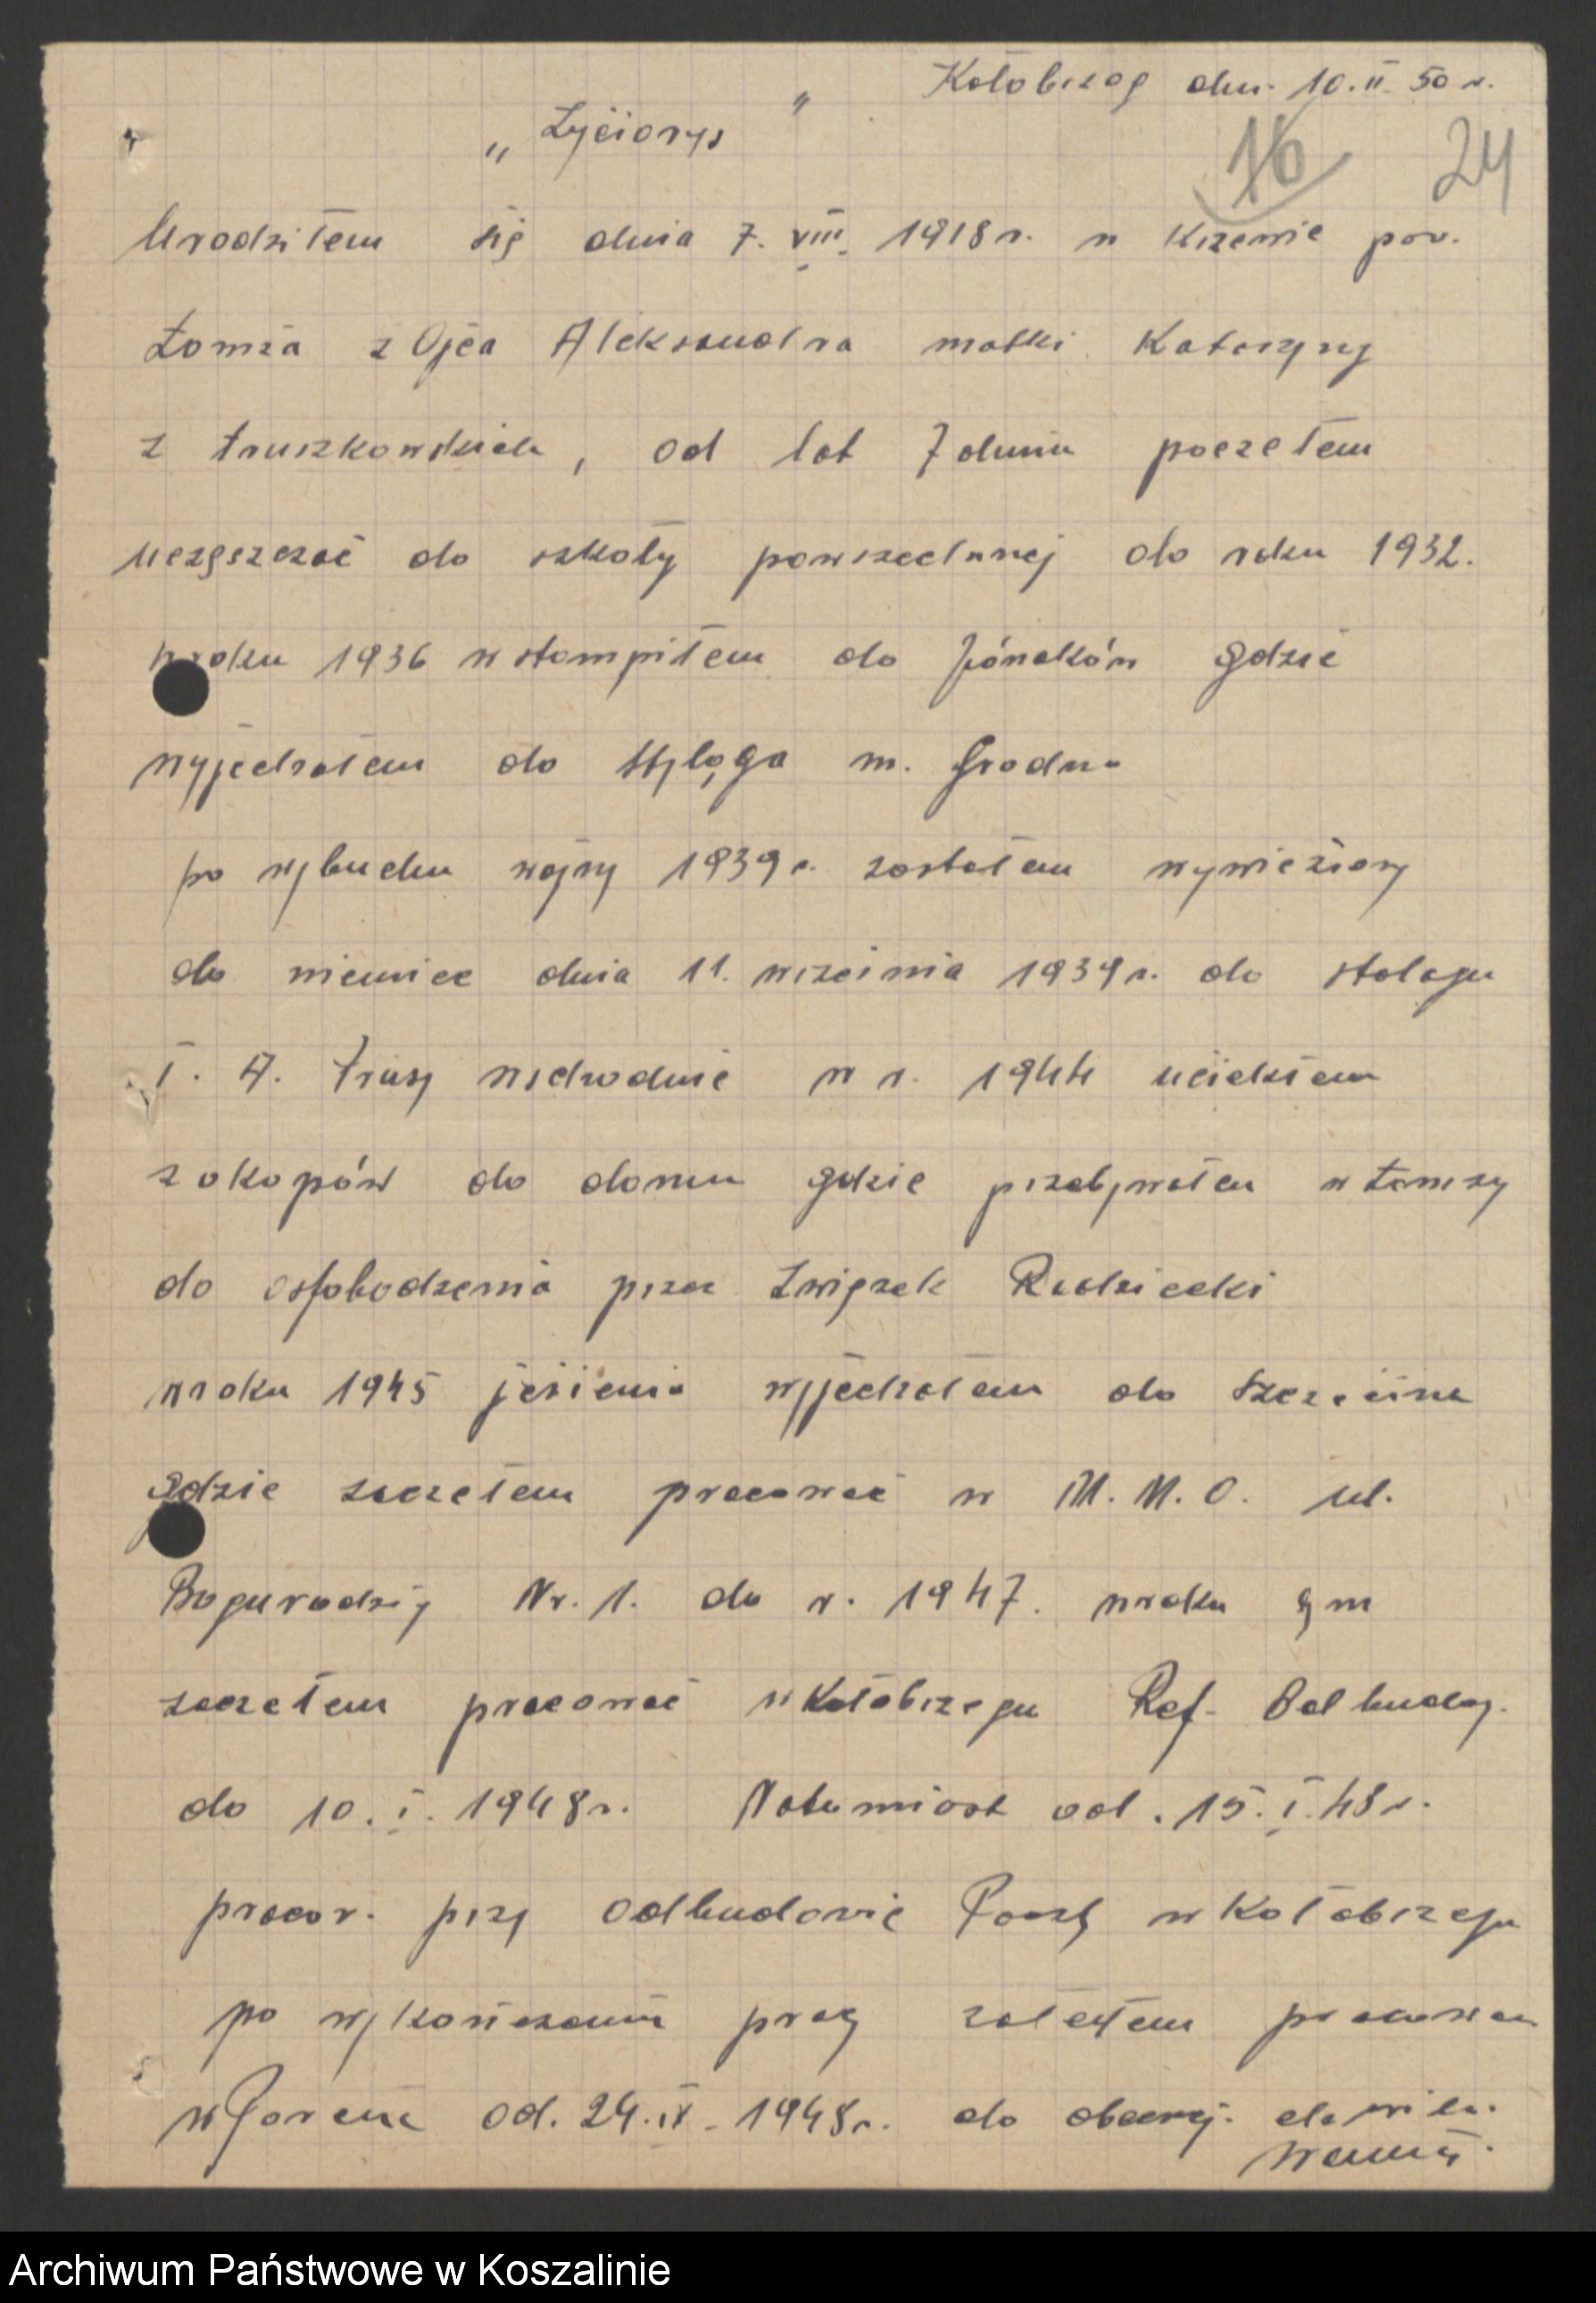 Kołobrzeg dn. 10.II 50 r.
„Życiorys”
16 24
Urodziłem się dnia 7. VIII. 1918 r. w pow.
Łomża z Ojca Aleksandra matki Katarzyny
z Truszkowskich, od lat 7dmiu poczełem
uczęszczać do szkoły powszechnej do roku 1932.
w roku 1936 wstompiłem do Jónaków gdzie
wyjechałem do m. Grodna
po wybuchu wojny 1939 r. zostałem wywieziony
do niemiec dnia 11. wrzeinia 1939 r. do stalagu
I. A. Prusy wschodnie w r. 1944 uciekłem
z okopów do domu gdzie przebywałem w Łomży
do osfobodzenia przez Związek Radziecki
w roku 1945 jesienia wyjechałem do Szczecina
gdzie zaczełem pracować w ul.
Bogurodzicy Nr. 1. do r. 1947. w roku tym
zaczełem pracować w Kołobrzegu Ref. Odbudowy.
do 10. I. 1948 r. Natomiast od. 15. I. 48 r.
pracow. przy Odbudowie Poczty w Kołobrzegu
po wykończeniu pracy pracować
od. 24. IX. 1948 r. do obecnej. chwili.